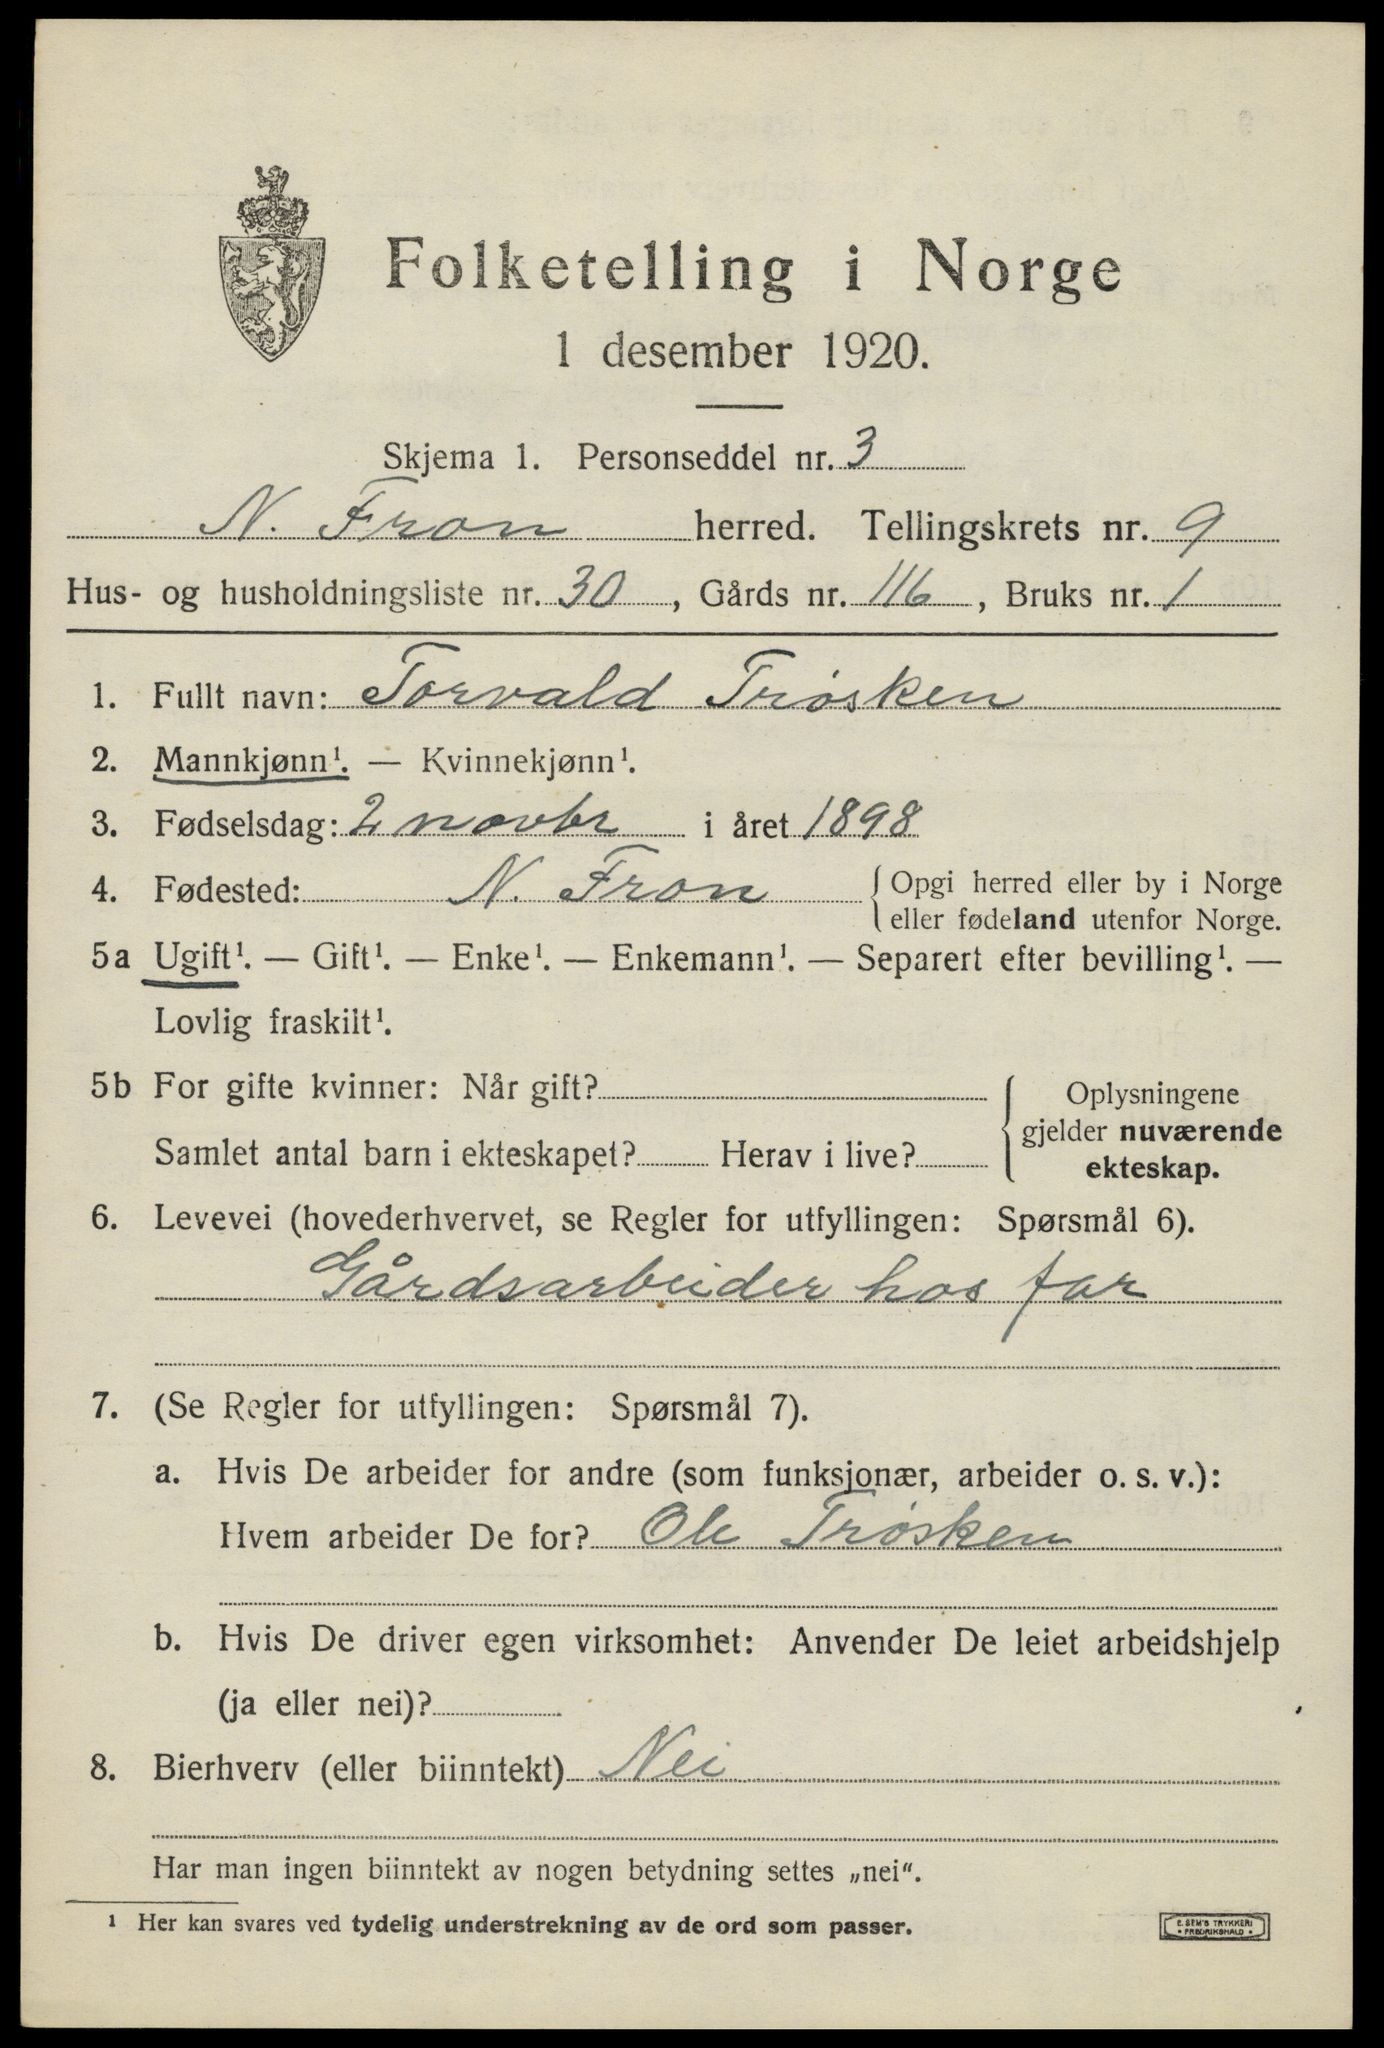 Folketelling i Norge
1 desember 1920.
Skjema 1. Personseddel nr. 3
N. Fron herred. Tellingskrets nr. 9
Hus- og husholdningsliste nr. 30, Gårds nr. 116, Bruks nr. 1
1. Fullt navn: Torvald Trøsken
2. Mannkjønn¹. — Kvinnekjønn¹.
3. Fødselsdag: 2 novbr i året 1898
4. Fødested: N. Fron { Opgi herred eller by i Norge
eller fødeland utenfor Norge.
5a Ugift¹. — Gift¹. — Enke¹. — Enkemann¹. — Separert efter bevilling¹. —
Lovlig fraskilt¹.
5b For gifte kvinner: Når gift?
Samlet antal barn i ekteskapet? Herav i live?
Oplysningene
gjelder nuværende
ekteskap.
6. Levevei (hovederhvervet, se Regler for utfyllingen: Spørsmål 6).
Gårdsarbeider hos far
7. (Se Regler for utfyllingen: Spørsmål 7).
a. Hvis De arbeider for andre (som funksjonær, arbeider o. s. v.):
Hvem arbeider De for? Ole Trøsken
b. Hvis De driver egen virksomhet: Anvender De leiet arbeidshjelp
(ja eller nei)?
8. Bierhverv (eller biinntekt) Nei
Har man ingen biinntekt av nogen betydning settes „nei“.
¹ Her kan svares ved tydelig understrekning av de ord som passer.
E. SEM'S TRYKKERI
• FREDRIKSHALD •